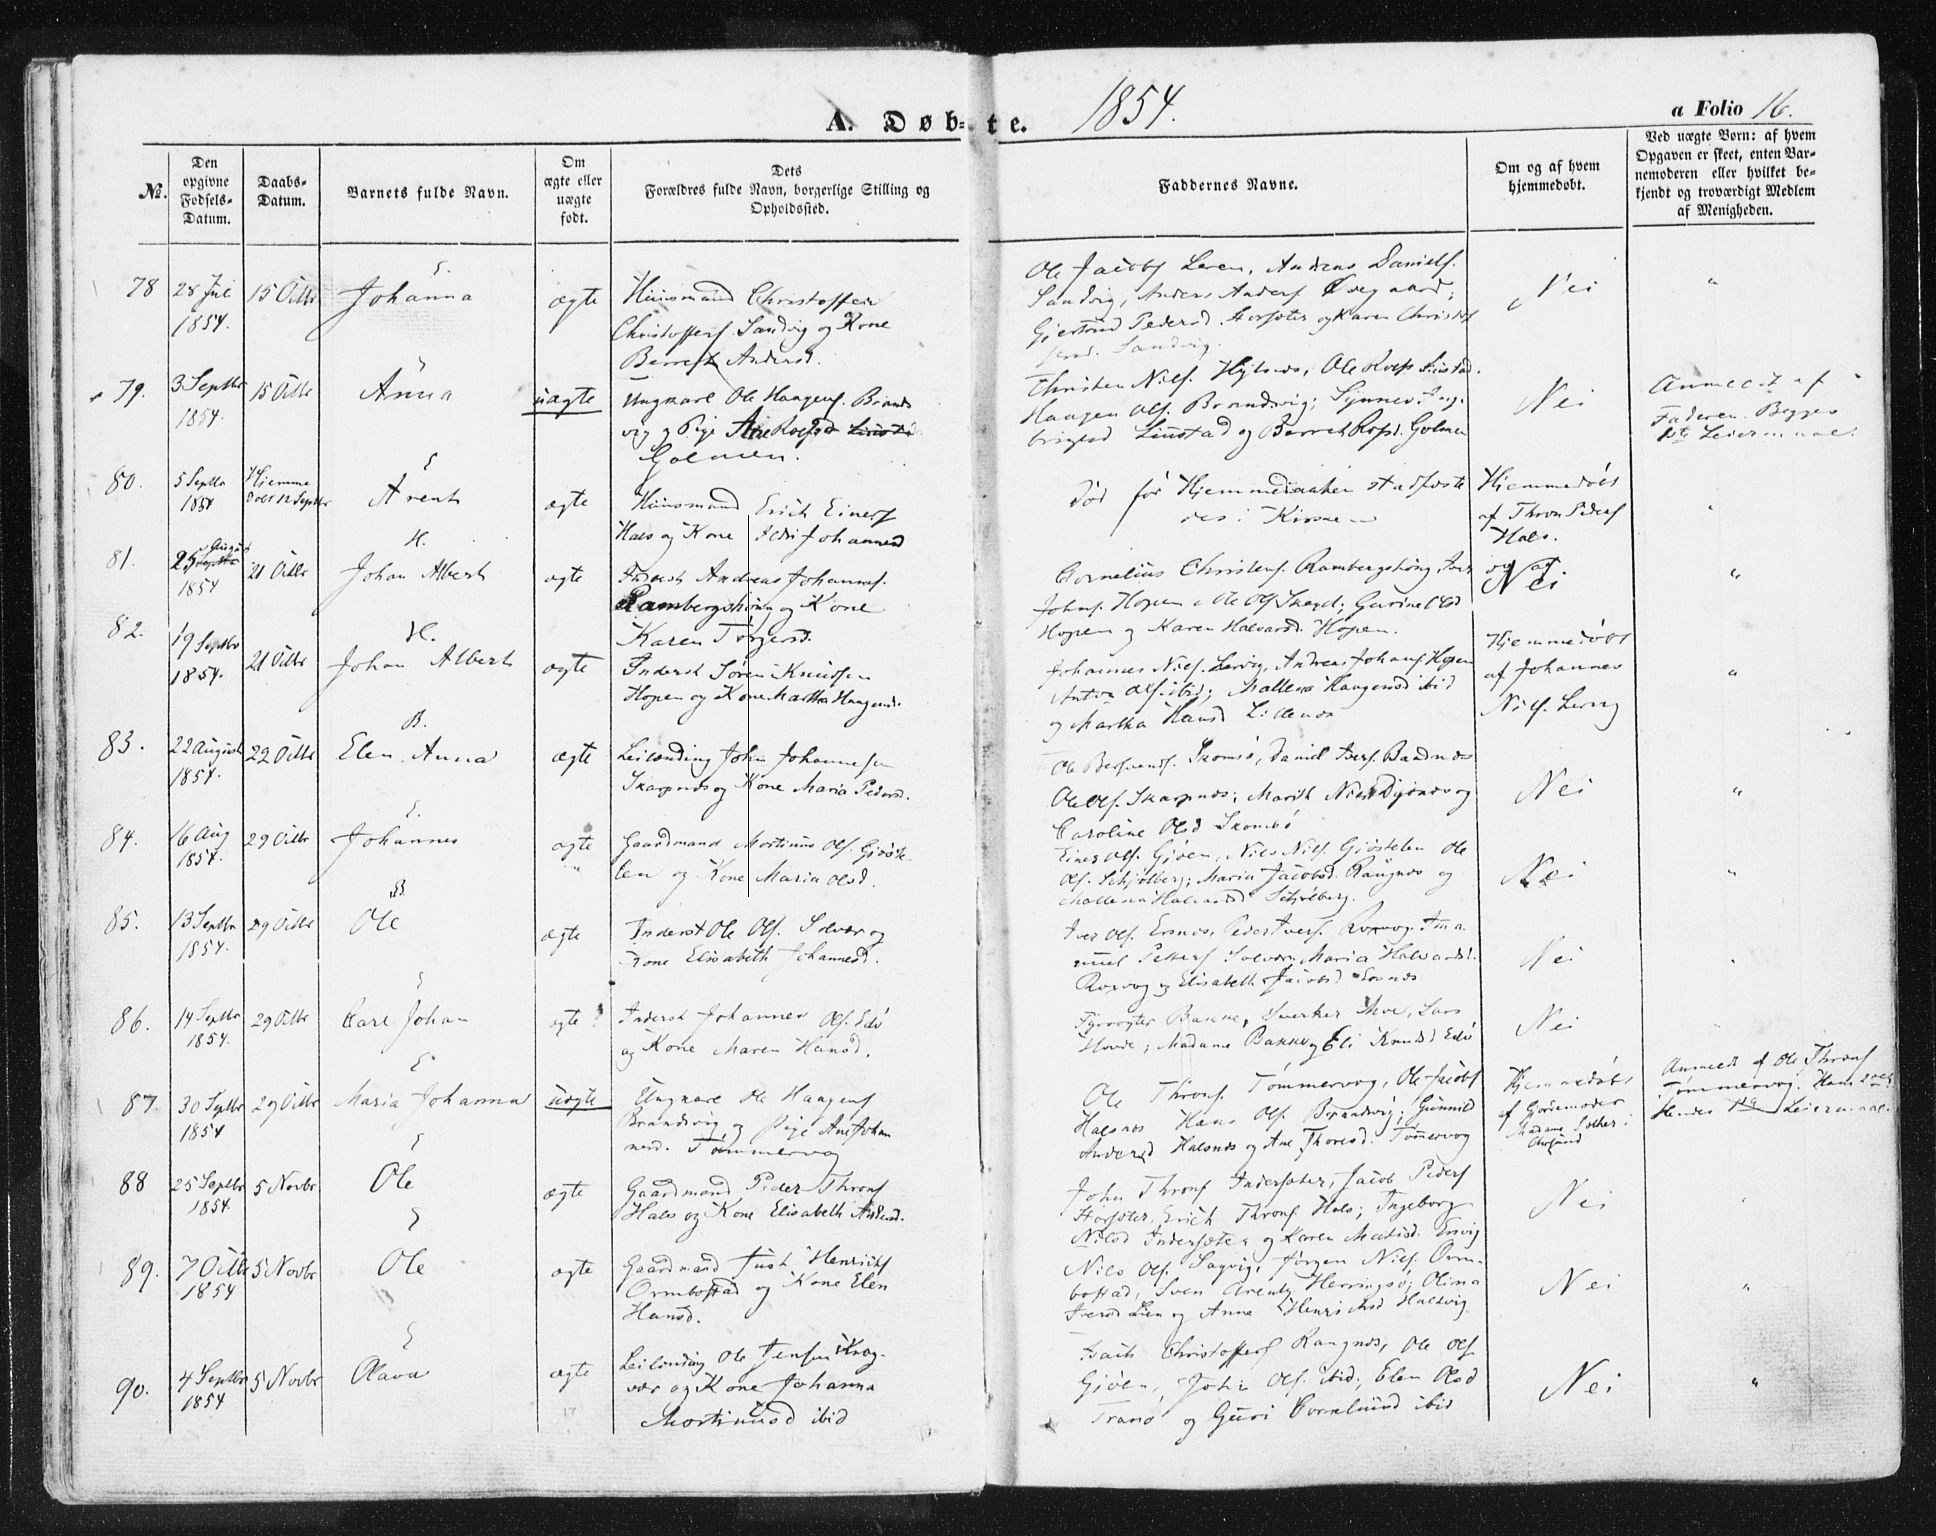 A. Døb- te. 1854. a Folio 16.
No.
Den opgivne Fødsels-Datum.
Daabs-Datum.
Barnets fulde Navn.
Om ægte eller uægte født.
Dets Forældres fulde Navn, borgerlige Stilling og Opholdssted.
Faddernes Navne.
Om og af hvem hjemmedøbt.
Ved uægte Børn: af hvem Opgaven er skeet, enten Barnemoderen eller hvilket bekjendt og troværdigt Medlem af Menigheden.
78 28 Jul 1854. 15 Octbr E. Johanna ægte
Huusmand Christoffer
Christoffers. Sandvig og Kone
Berreth Andersd.
Ole Jacobs Leren, Andreas Daniels.
Sandvig, Anders Anders.
Gjertrud Pedersd. Horsæter og Karen Christof
fersd. Sandvig.
Nei "
79. 3 Septbr 1854. 15 Octbr E Anna uægte
Ungkarl Ole Haagens. Brands
vig og Pige Ane Roelsd
Golmen.
Christen Niels.
Haagen Ols. Brandsvig; Synnev Ing-
brigtsd Liustad og Berret Golmen
Nei
Anmeldt af
Faderen. Begges
1ste Leiermaal.
80. 5 Septbr 1854 Hjemme døbt 12 Septbr E Arent ægte
Huusmand Erich Einers
Hals og Kone Ildri Johannesd
Død før Hjemmedaaben stadfæste
des i Kirken
Hjemmedøbt
af Thron Peders
Hals. "
81. 25 August 1854 21 Octbr H. Johan Albert ægte
Inderst Andreas Johannes.
Rambergshøug og Kone
Karen Torgersd.
Cornelius Christens. Rambergshøug, Iver
Johns. Hopen, Ole Ols Gurine Olsd
Hopen og Karen Halvardsd. Hopen.
Nei "
82. 19 Septbr 1854. 21 Octbr H. Johan Albert ægte
Inderst Søren Knudsen
Hopen og Kone Martha Haagensd.
Johannes Niels. Lervig, Andreas Johans Hopen
Anton Ols. ibid; Mallena Haagensd ibid
og Martha Hansd Lillenes
Hjemmedøbt
af Johannes
Niels. Lervig "
83. 22 August 1854. 22 Octbr B. Elen Anna ægte
Leilænding John Johannesen
Skarpnes og Kone Maria Pedersd.
Ole Skomsø, Daniel Ivers. Baadnes
Ole Ols. Skarpnes; Marith Nielsd og
Caroline Olsd Skomsø
Nei "
84. 16 Aug 1854. 29 Octbr E. Johannes ægte
Gaardmand Mortinus Ols. Gjøste-
len og Kone Maria Olsd.
Einer Ols. Gjøen, Niels Niels. Gjøstelen Ole
Ols. Schjølberg; Maria Jacobsd. Rangnes og
Mallena Halvardsd Schjølberg.
Nei "
85. 13 Septbr 1854. 29 Octbr B Ole ægte
Inderst Ole Ols. Solvær og
Kone Elisabeth Johannesd.
Iver Ols. Ersnes, Peder Ivers. Roxvog, Ema
nuel Petters Solvær, Maria Halvardsd.
Roxvog og Elisabeth Jacobsd Ersnes
Nei "
86. 14 Septbr 1854. 29 Octbr E Carl Johan ægte
Inderst Johannes Ols. Edø
og Kone Maren Hansd.
Fyrvogter Bakke, Lars
Hovde; Madame Bakke og Eli Knudsd Edø
Nei
87. 30 Septbr 1854 29 Octbr E Maria Johanna uægte
Ungkarl Ole Haagens
Brandsvig og Pige Ane Johan
nesd. Tømmervog
Ole Throns. Tømmervog, Ole Jacobs
Halsnes Hans Ols. Brandsvig; Gunnild
Andersd Halsnes og Ane Thoresd. Tømmervog
Hjemmedøbt
af Gjordemoder
Madame
Anmeldt af Ole Throns
Tømmervog. Hans
Hendes 1ste Leiermaal.
88 25 Septbr 1854. 5 Novbr E Ole ægte
Gaardmand Peder Throns
Hals og Kone Elisabeth Andersd.
John Throns Indersæter, Jacob Peders
Horsæter, Erich Throns Hals; Ingeborg
Nilsd Indersæter og Karen Mathisd. Ersvig
Nei "
89. 7 Octbr 1854 5 Novbr E Ole ægte
Gaardmand Just Henrichs
Ormbostad og Kone Elen
Hansd.
Niels Ols. Sagvig, Jørgen Niels. Orm-
bostad, Sven Arents Herringsø; Olina
Iversd Lien og Anne Henrichsd Halsvig
Nei "
90. 4 Septbr 1854 5 Novbr E Olava ægte
Leilænding Ole Jensen Krog-
vær og Kone Johanna
Mortinusd ibid
Christoffers Rangnes, Ole Ols
Gjøen, John Ols. ibid; Elen Olsd
Tranø og Guri Cornelsd ibid
Nei "